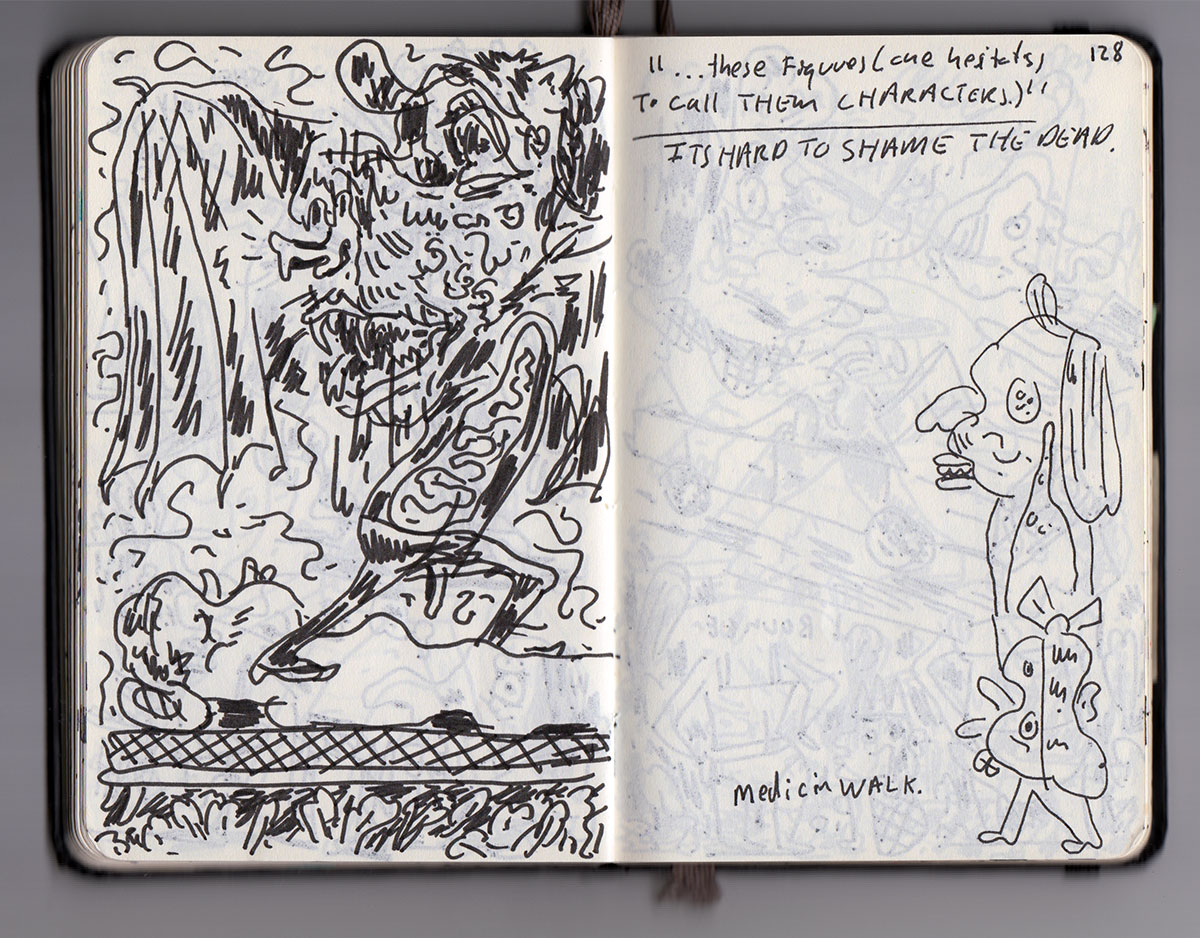 128
"...these Figures (one hesitates
TO Call THEM CHARACTERS.)"
ITS HARD TO SHAME THE DEAD.
Medicin WALK.